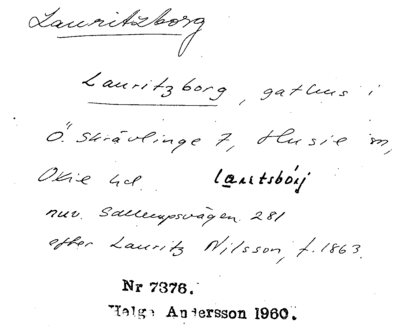 Lauritzborg
Lauritzborg, gathus i
Ö. Skrävlinge 7, Husie sn,
Oxie hd. lauṛtsbórj
nuv. Sallerupsvägen 281
efter Lauritz Nilsson, f. 1863.
Nr 7376.
Helge Andersson 1960.